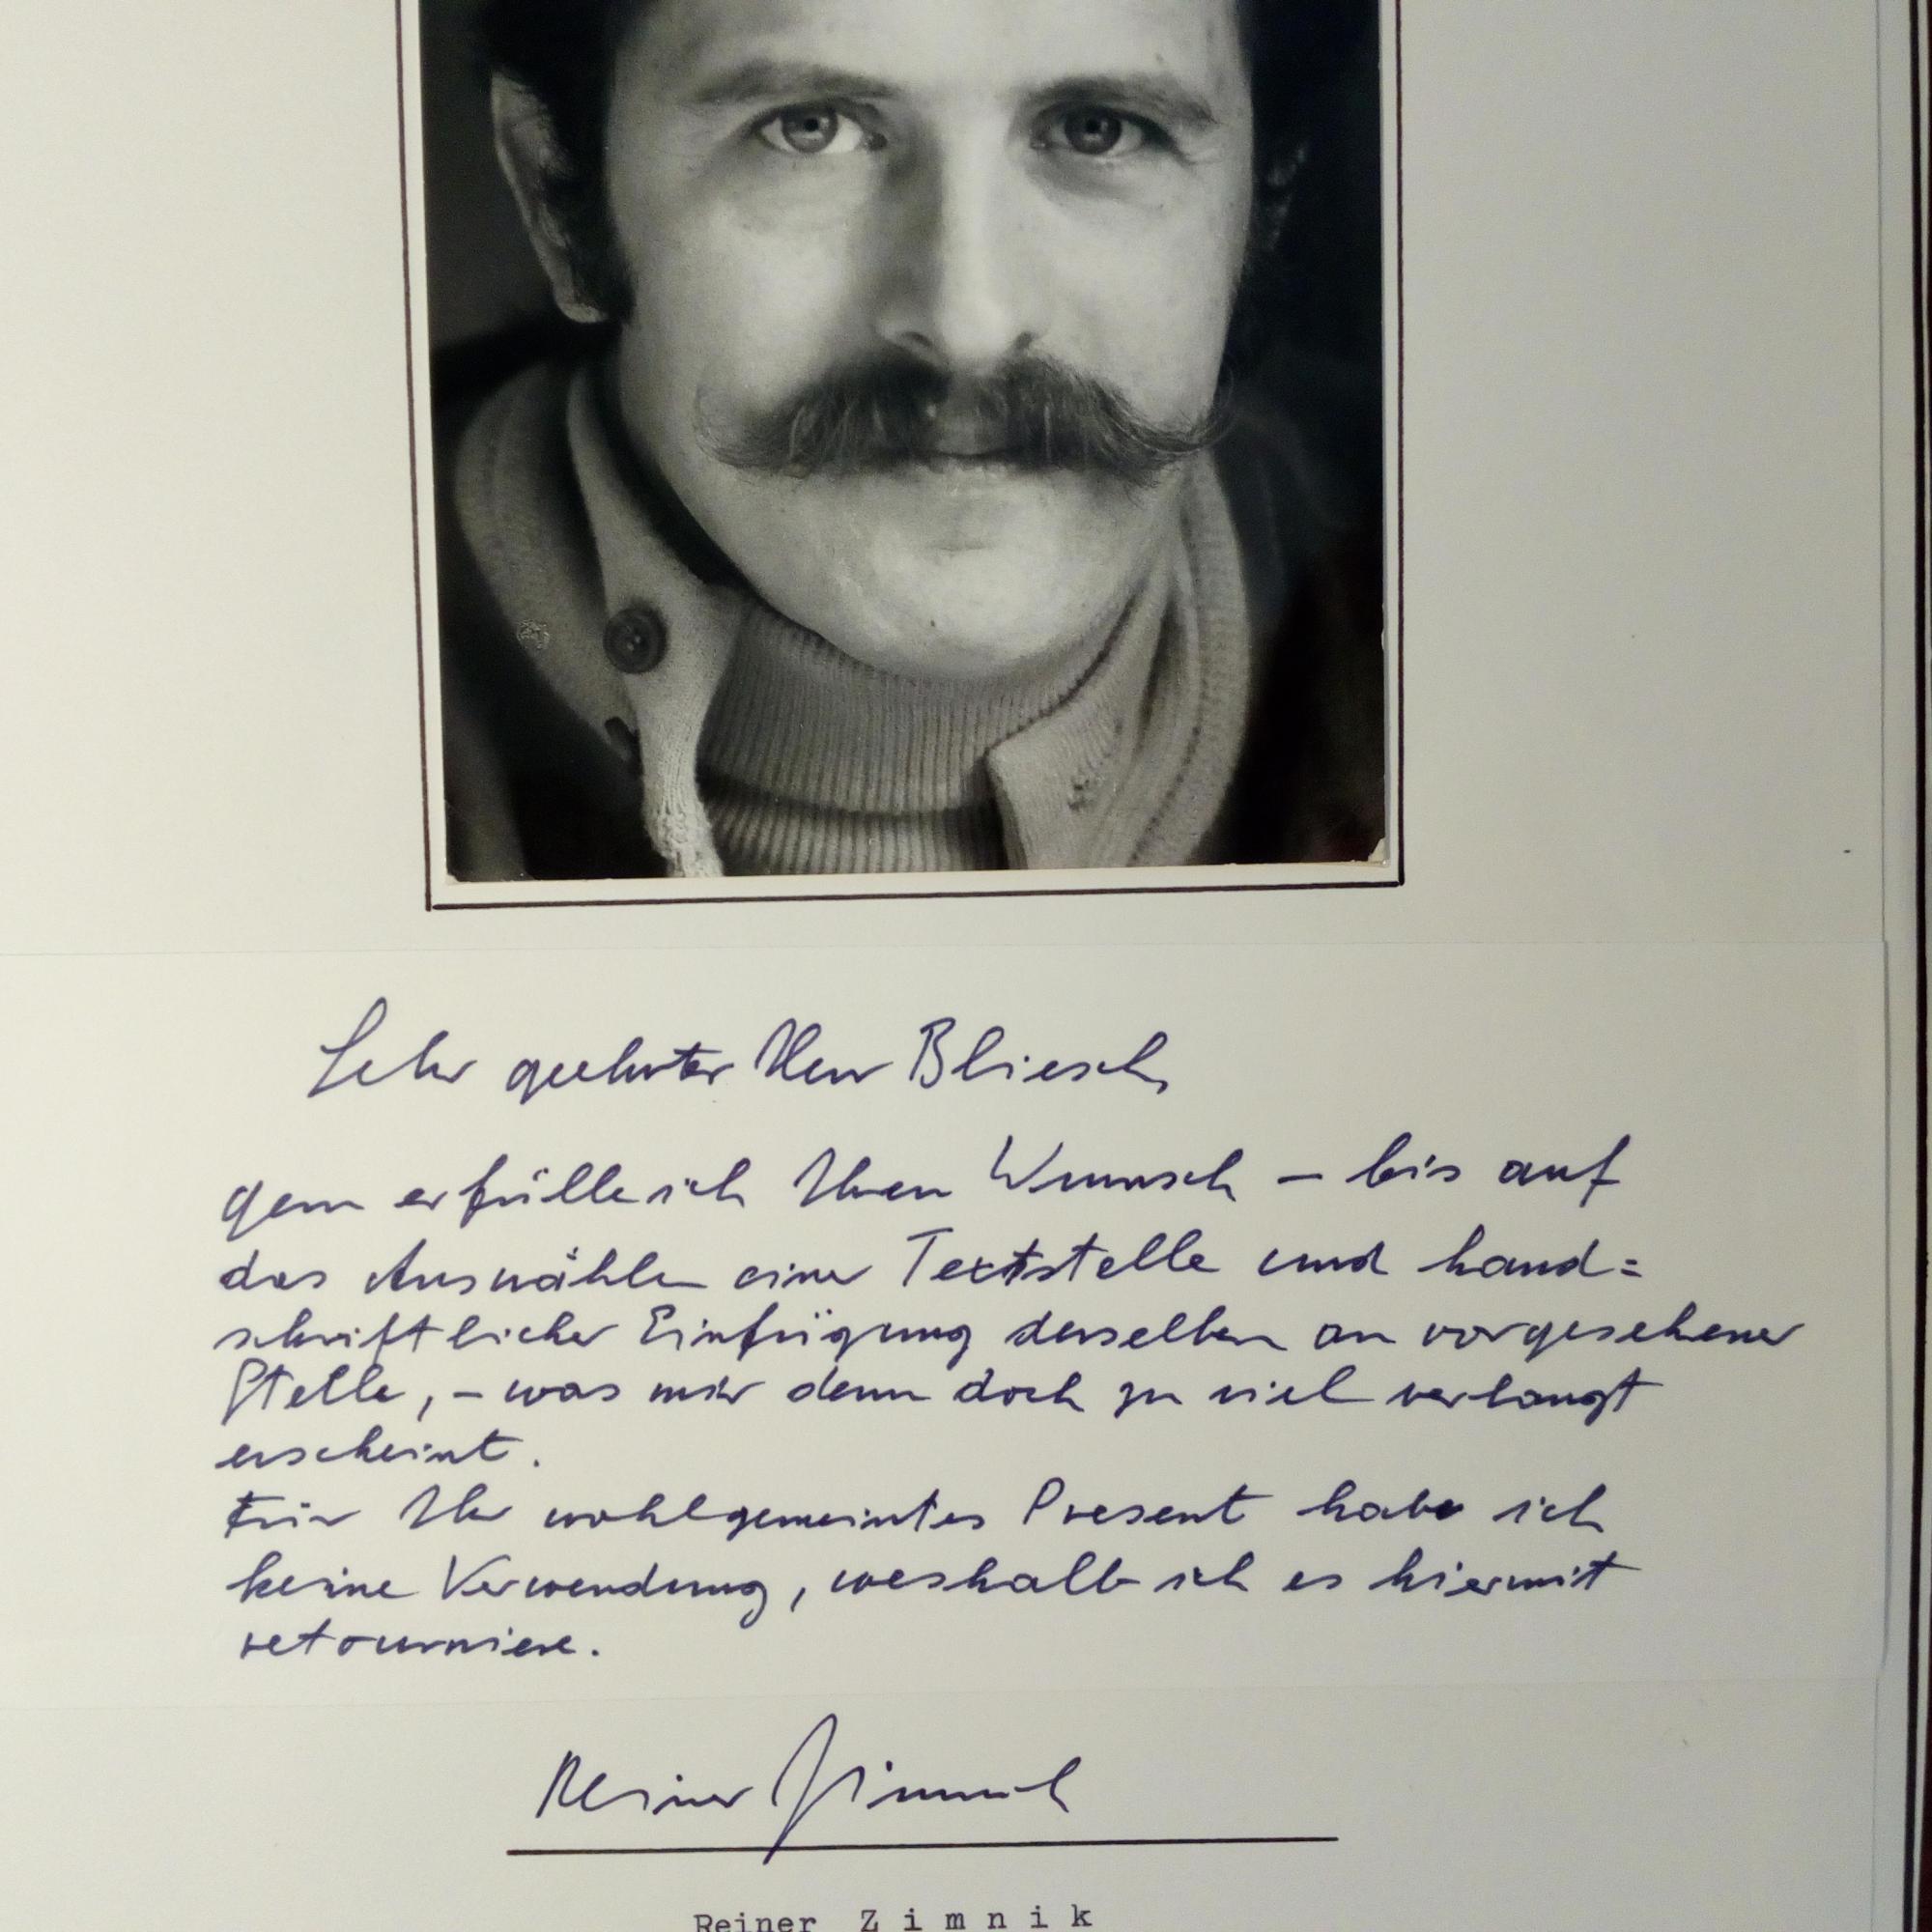 Sehr geehrter Herr Bliesch
gern erfülle ich Ihren Wunsch – bis auf
das Auswählen einer Textstelle und hand=
schriftlicher Einfügung derselben an vorgesehener
Stelle, – was mir denn doch zu viel verlangt
erscheint.
Für Ihr wohlgemeintes Present habe ich
keine Verwendung, weshalb ich es hiermit
retourniere.
Reiner Zimnik
Reiner Zimnik